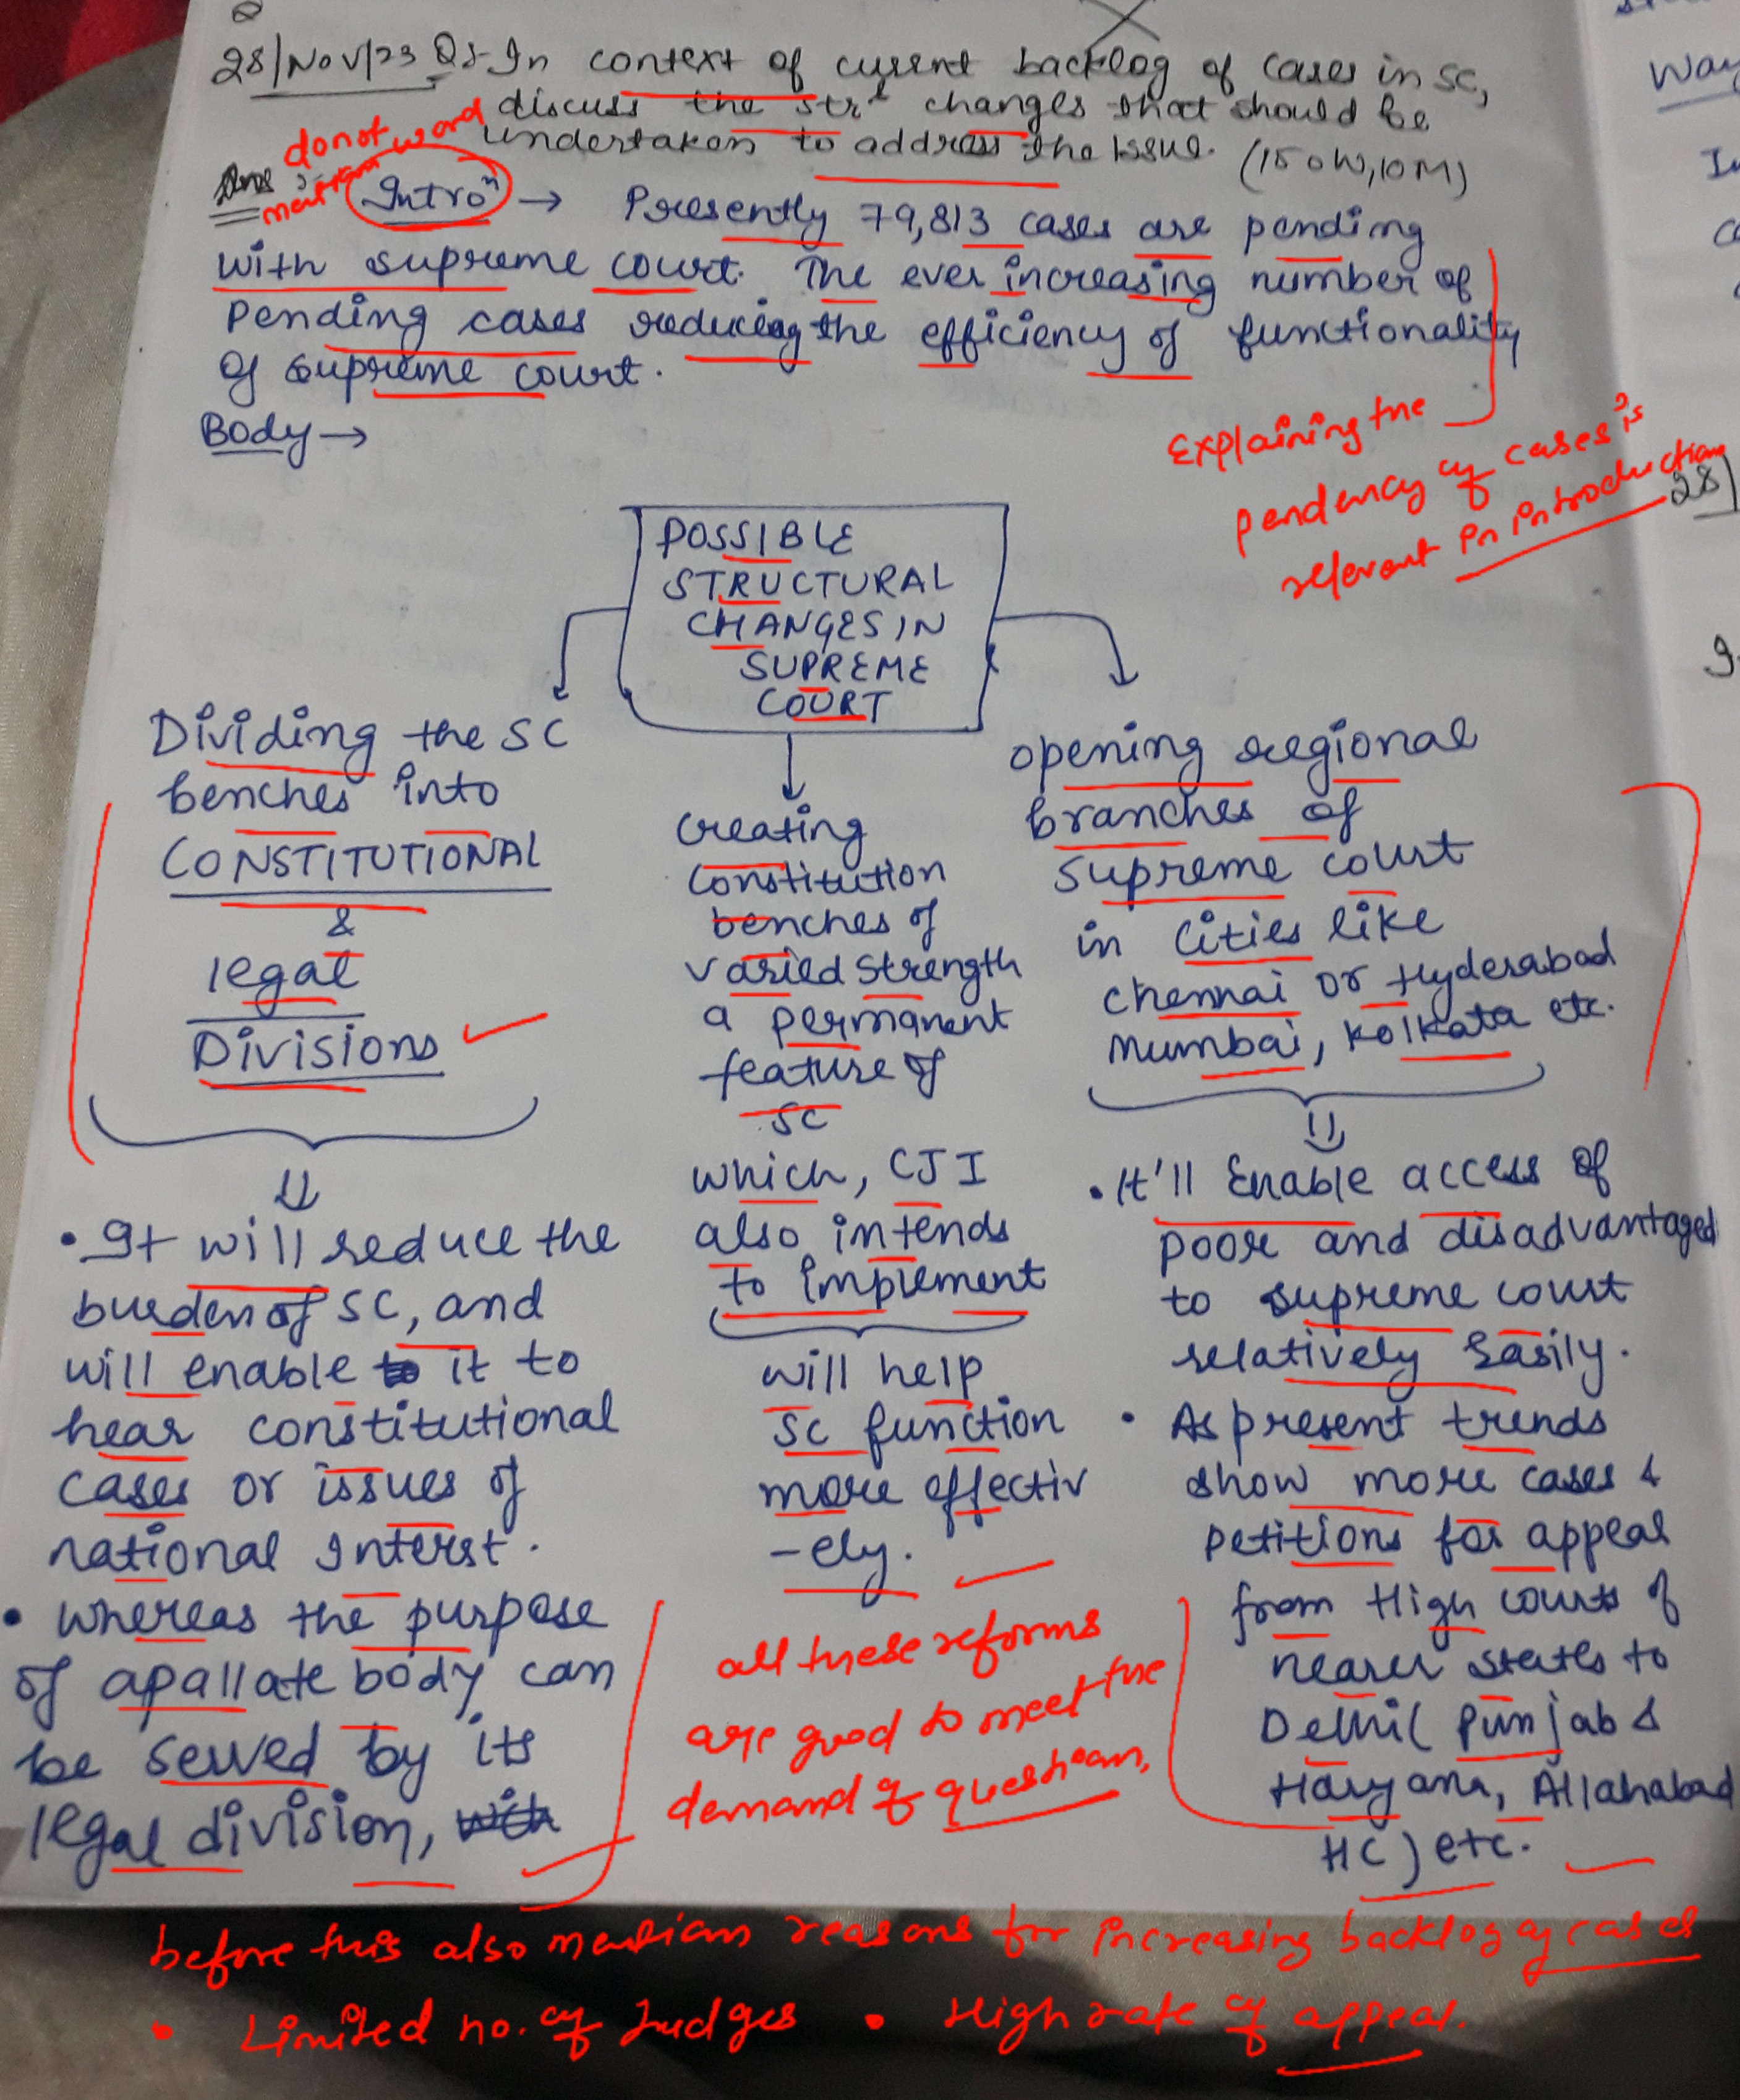 28/Nov/23 Q5- In context of current backlog of cases in SC,
discuss the strl changes that should be
undertaken to address the issue. (150W,10M)
do not word
mention
Ans :-
Intron → Presently 79,813 cases are pending
with supreme court. The ever increasing number of
pending cases reducing the efficiency of functionality
of supreme court.
Explaining the
pendency of cases is
relevant in introduction
Body →
POSSIBLE
STRUCTURAL
CHANGES IN
SUPREME
COURT
Dividing the SC
benches into
CONSTITUTIONAL
&
legal
Divisions
• It will reduce the
burden of SC, and
will enable it to
hear constitutional
cases or issues of
national Interst.
• whereas the purpose
of apallate body can
be served by its
legal division, with
creating
constitution
benches of
varied strength
a permanent
feature of
SC
which, CJI
also intends
to implement
will help
SC function
more effectiv
-ely.
all these reforms
are good to meet the
demand of question,
opening regional
branches of
supreme court
in cities like
chennai or Hyderabad
Mumbai, Kolkata etc.
• It'll Enable access of
poor and disadvantaged
to supreme court
relatively Easily.
• As present trends
show more cases &
petitions for appeal
from High courts of
nearer states to
Delhi( Punjab &
Haryana, Allahabad
HC) etc.
before this also mention reasons for increasing backlog of cases
• Limited no. of Judges • High rate of appeal.
28)
Way
In